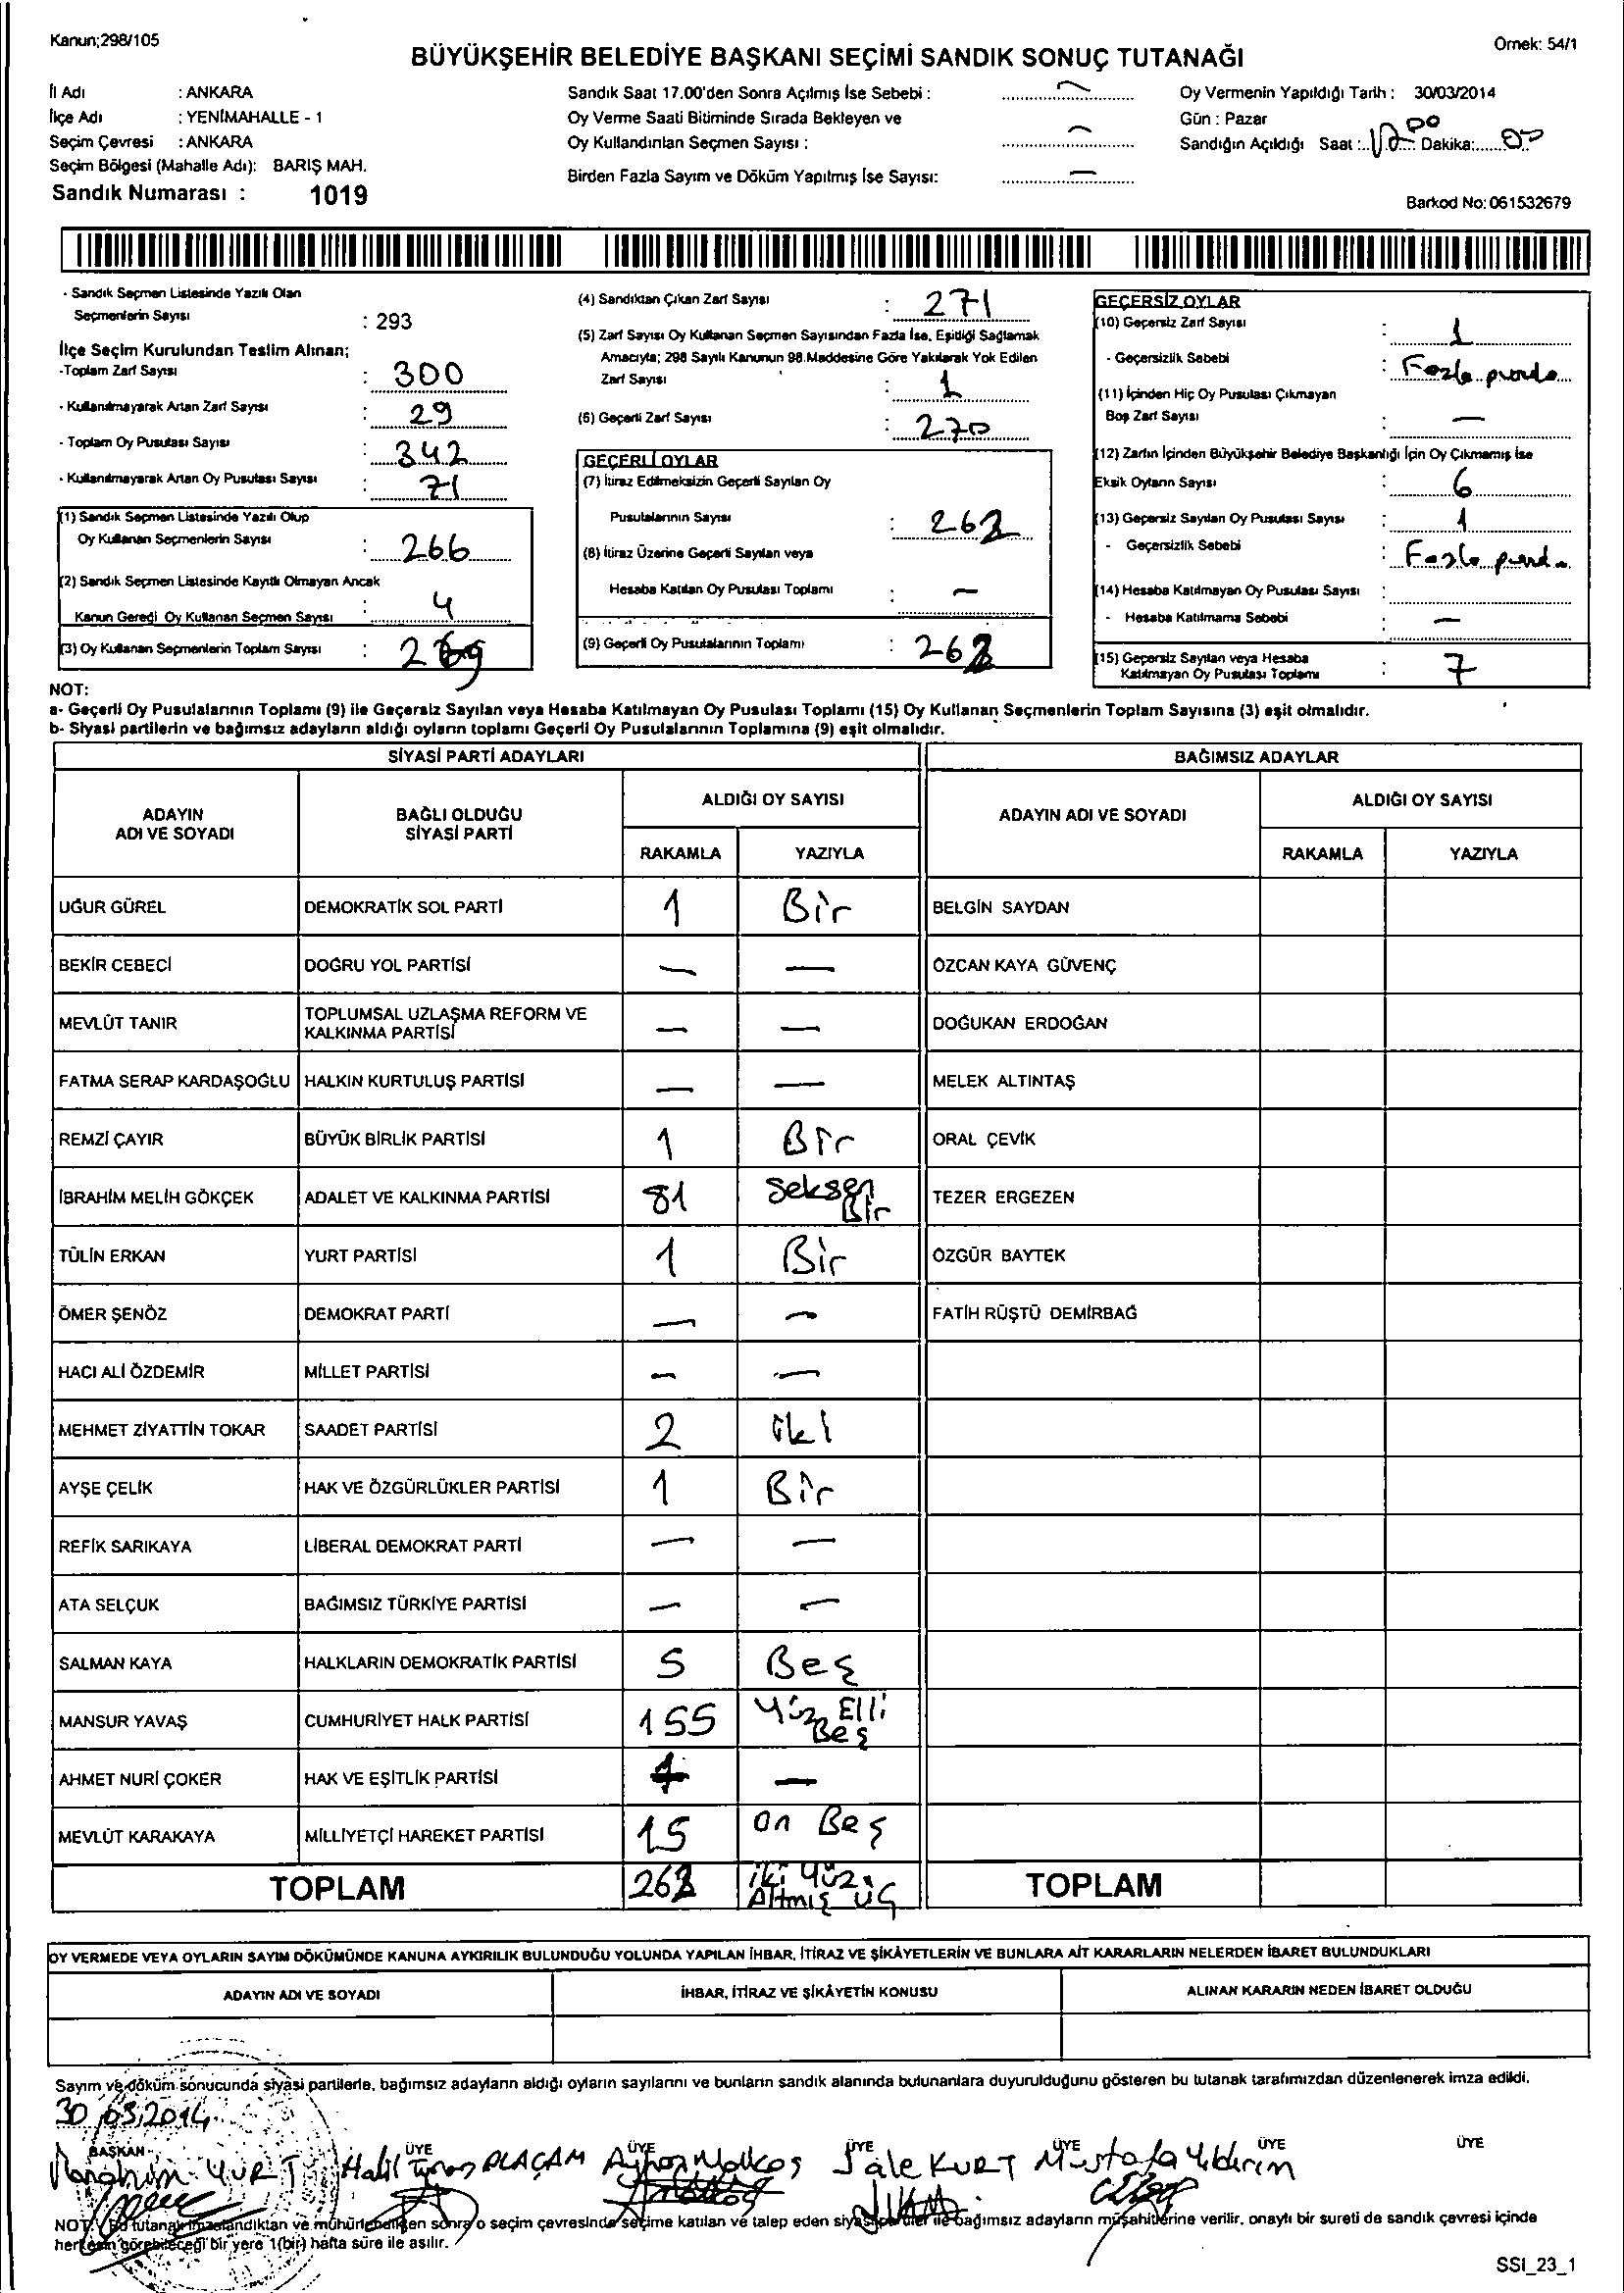 Kanun;298/105
Örnek: 54/1
BÜYÜKŞEHİR BELEDİYE BAŞKANI SEÇİMİ SANDIK SONUÇ TUTANAĞI
İl Adı : ANKARA
İlçe Adı : YENİMAHALLE - 1
Seçim Çevresi : ANKARA
Seçim Bölgesi (Mahalle Adı): BARIŞ MAH.
Sandık Numarası : 1019
Sandık Saat 17.00'den Sonra Açılmış İse Sebebi : —
Oy Verme Saati Bitiminde Sırada Bekleyen ve
Oy Kullandırılan Seçmen Sayısı : —
Birden Fazla Sayım ve Döküm Yapılmış İse Sayısı: —
Oy Vermenin Yapıldığı Tarih : 30/03/2014
Gün : Pazar
Sandığın Açıldığı Saat : Dakika: 00
Barkod No: 061532679
- Sandık Seçmen Listesinde Yazılı Olan
Seçmenlerin Sayısı : 293
İlçe Seçim Kurulundan Teslim Alınan;
-Toplam Zarf Sayısı : 300
- Kullanılmayarak Artan Zarf Sayısı : 29
- Toplam Oy Pusulası Sayısı : 342
- Kullanılmayarak Artan Oy Pusulası Sayısı : 71
(1) Sandık Seçmen Listesinde Yazılı Olup
Oy Kullanan Seçmenlerin Sayısı : 266
(2) Sandık Seçmen Listesinde Kayıtlı Olmayan Ancak
Kanun Gereği Oy Kullanan Seçmen Sayısı : 4
(3) Oy Kullanan Seçmenlerin Toplam Sayısı :
(4) Sandıktan Çıkan Zarf Sayısı : 271
(5) Zarf Sayısı Oy Kullanan Seçmen Sayısından Fazla İse, Eşitliği Sağlamak
Amacıyla; 298 Sayılı Kanunun 98.Maddesine Göre Yakılarak Yok Edilen
Zarf Sayısı : 1
(6) Geçerli Zarf Sayısı : 270
GEÇERLİ OYLAR
(7) İtiraz Edilmeksizin Geçerli Sayılan Oy
Pusulalarının Sayısı :
(8) İtiraz Üzerine Geçerli Sayılan veya
Hesaba Katılan Oy Pusulası Toplamı : —
(9) Geçerli Oy Pusulalarının Toplamı :
GEÇERSİZ OYLAR
(10) Geçersiz Zarf Sayısı : 1
- Geçersizlik Sebebi : Fazla
(11) İçinden Hiç Oy Pusulası Çıkmayan
Boş Zarf Sayısı : —
(12) Zarfın İçinden Büyükşehir Belediye Başkanlığı İçin Oy Çıkmamış İse
Eksik Oyların Sayısı : 6
(13) Geçersiz Sayılan Oy Pusulası Sayısı : 1
- Geçersizlik Sebebi : Fazla
(14) Hesaba Katılmayan Oy Pusulası Sayısı :
- Hesaba Katılmama Sebebi : —
(15) Geçersiz Sayılan veya Hesaba
Katılmayan Oy Pusulası Toplamı : 7
NOT:
a- Geçerli Oy Pusulalarının Toplamı (9) ile Geçersiz Sayılan veya Hesaba Katılmayan Oy Pusulası Toplamı (15) Oy Kullanan Seçmenlerin Toplam Sayısına (3) eşit olmalıdır.
b- Siyasi partilerin ve bağımsız adayların aldığı oyların toplamı Geçerli Oy Pusulalarının Toplamına (9) eşit olmalıdır.
SİYASİ PARTİ ADAYLARI
BAĞIMSIZ ADAYLAR
ADAYIN ADI VE SOYADI
BAĞLI OLDUĞU SİYASİ PARTİ
ALDIĞI OY SAYISI
RAKAMLA YAZIYLA
ADAYIN ADI VE SOYADI
ALDIĞI OY SAYISI
RAKAMLA YAZIYLA
UĞUR GÜREL DEMOKRATİK SOL PARTİ 1 Bir BELGİN SAYDAN
BEKİR CEBECİ DOĞRU YOL PARTİSİ — — ÖZCAN KAYA GÜVENÇ
MEVLÜT TANIR TOPLUMSAL UZLAŞMA REFORM VE KALKINMA PARTİSİ — — DOĞUKAN ERDOĞAN
FATMA SERAP KARDAŞOĞLU HALKIN KURTULUŞ PARTİSİ — — MELEK ALTINTAŞ
REMZİ ÇAYIR BÜYÜK BİRLİK PARTİSİ 1 Bir ORAL ÇEVİK
İBRAHİM MELİH GÖKÇEK ADALET VE KALKINMA PARTİSİ 81 Seksen Bir TEZER ERGEZEN
TÜLİN ERKAN YURT PARTİSİ 1 Bir ÖZGÜR BAYTEK
ÖMER ŞENÖZ DEMOKRAT PARTİ — — FATİH RÜŞTÜ DEMİRBAĞ
HACI ALİ ÖZDEMİR MİLLET PARTİSİ — —
MEHMET ZİYATTİN TOKAR SAADET PARTİSİ 2 iki
AYŞE ÇELİK HAK VE ÖZGÜRLÜKLER PARTİSİ 1 Bir
REFİK SARIKAYA LİBERAL DEMOKRAT PARTİ — —
ATA SELÇUK BAĞIMSIZ TÜRKİYE PARTİSİ — —
SALMAN KAYA HALKLARIN DEMOKRATİK PARTİSİ 5 Beş
MANSUR YAVAŞ CUMHURİYET HALK PARTİSİ 155 Yüz Elli Beş
AHMET NURİ ÇOKER HAK VE EŞİTLİK PARTİSİ —
MEVLÜT KARAKAYA MİLLİYETÇİ HAREKET PARTİSİ 15 on Beş
TOPLAM iki Yüz Altmış üç TOPLAM
OY VERMEDE VEYA OYLARIN SAYIM DÖKÜMÜNDE KANUNA AYKIRILIK BULUNDUĞU YOLUNDA YAPILAN İHBAR, İTİRAZ VE ŞİKÂYETLERİN VE BUNLARA AİT KARARLARIN NELERDEN İBARET BULUNDUKLARI
ADAYIN ADI VE SOYADI İHBAR, İTİRAZ VE ŞİKÂYETİN KONUSU ALINAN KARARIN NEDEN İBARET OLDUĞU
Sayım ve döküm sonucunda siyasi partilerle, bağımsız adayların aldığı oyların sayılarını ve bunların sandık alanında bulunanlara duyurulduğunu gösteren bu tutanak tarafımızdan düzenlenerek imza edildi.
30/03/2014
BAŞKAN ÜYE ÜYE ÜYE ÜYE ÜYE ÜYE
YURT Halil Jale KURT Mustafa Yıldırım
NOT: Bu tutanak imzalandıktan ve mühürlendikten sonra o seçim çevresinde seçime katılan ve talep eden siyasi partiler ile bağımsız adayların müşahitlerine verilir, onaylı bir sureti de sandık çevresi içinde
herkesin görebileceği bir yere 1(bir) hafta süre ile asılır.
SSI_23_1